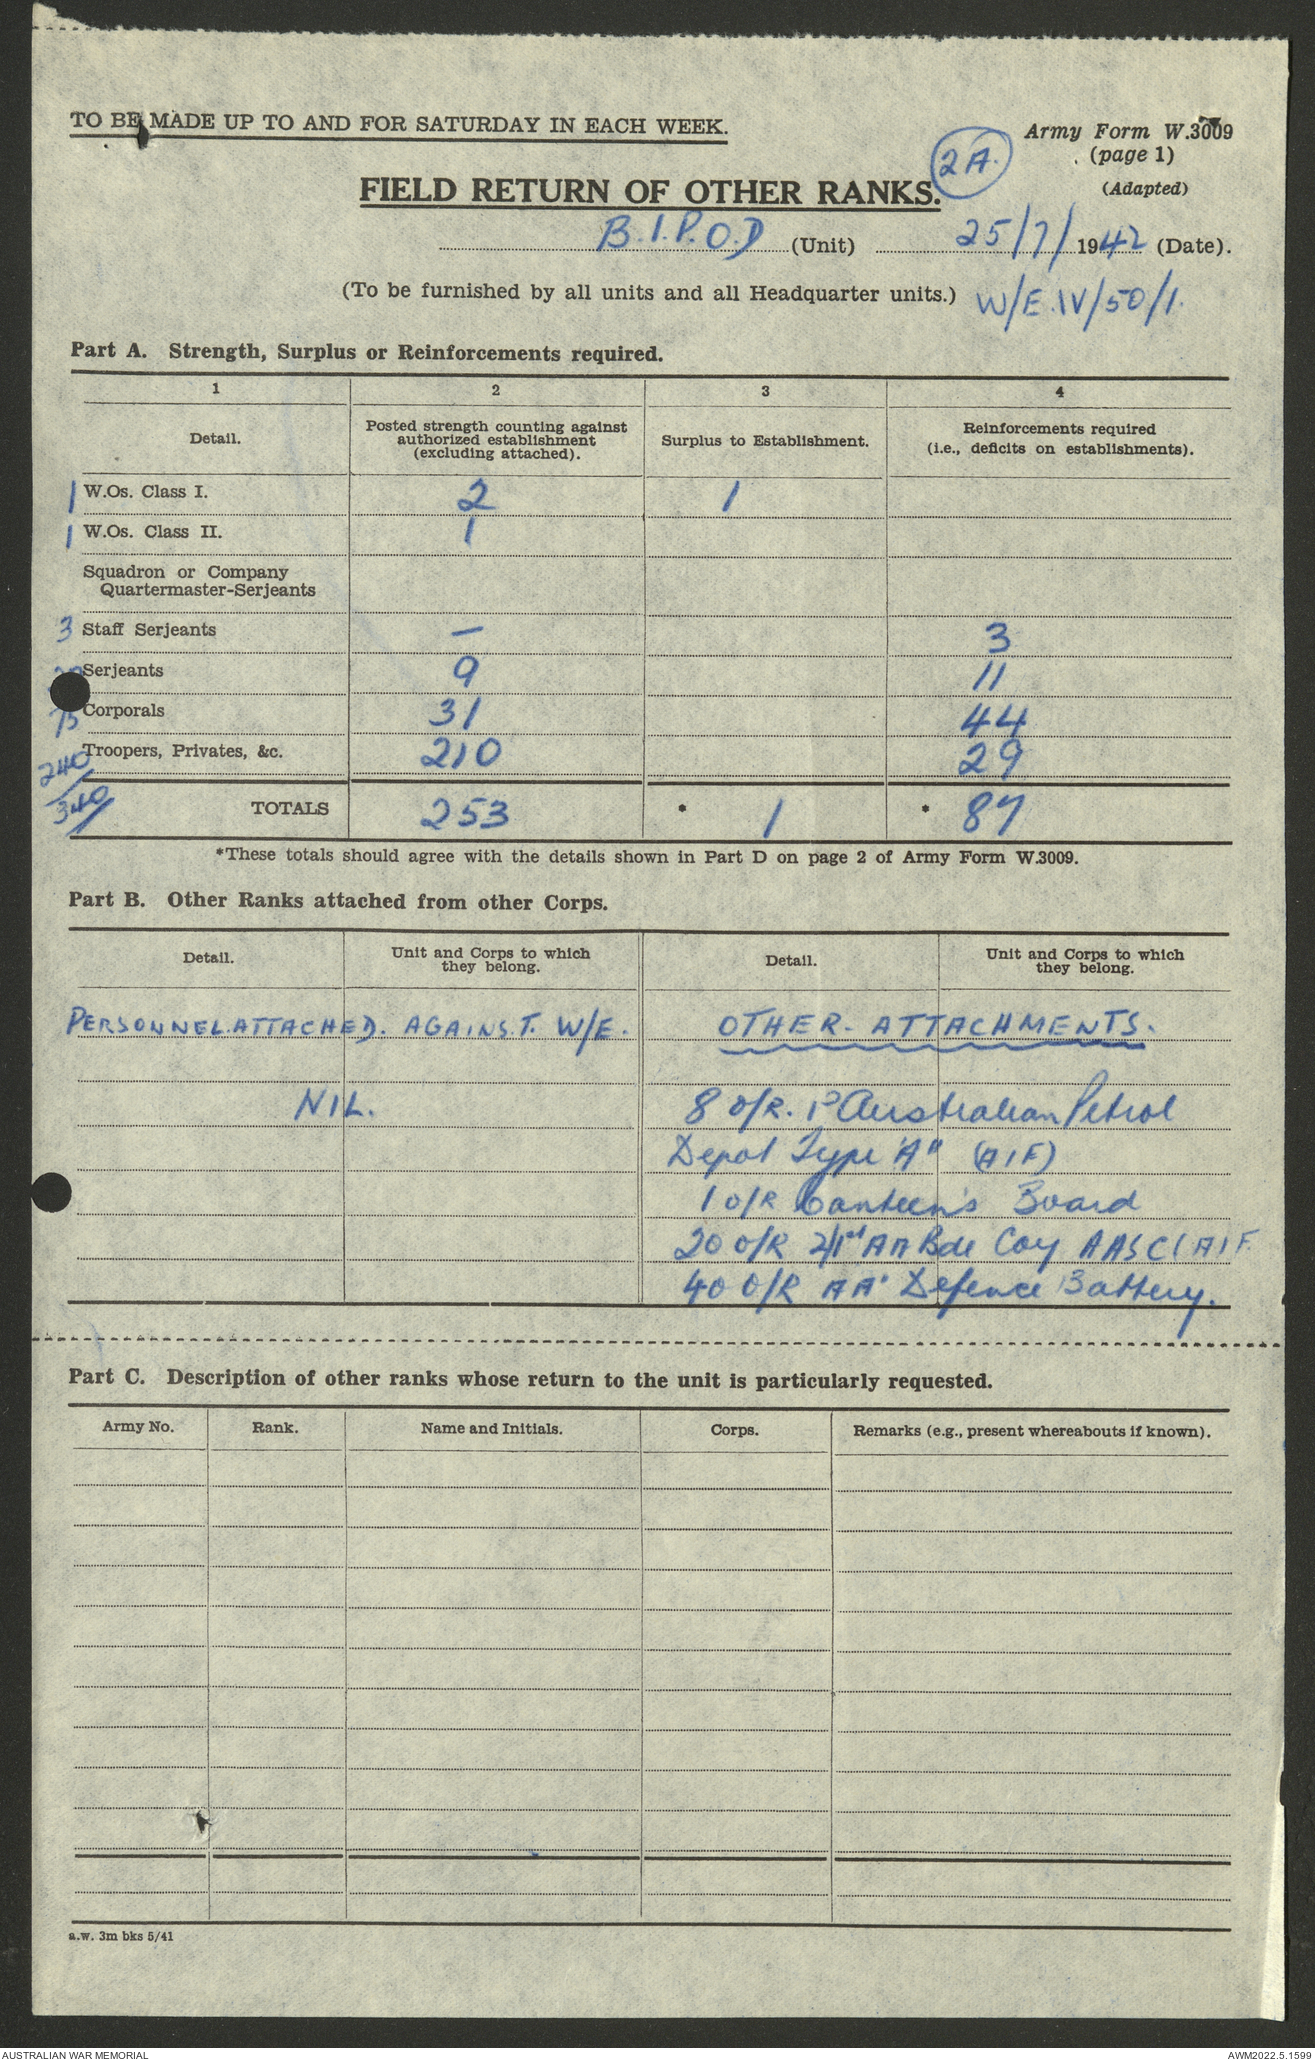 TO BE MADE UP TO AND FOR SATURDAY IN EACH WEEK.
Army Form W.3009
(page 1)
(Adapted)
2A.
FIELD RETURN OF OTHER RANKS.
B.I.P.O.D (Unit) 25/7/1942 (Date).
(To be furnished by all units and all Headquarter units.) W/E.IV/50/1.
Part A. Strength, Surplus or Reinforcements required.
1 2 3 4
Detail. Posted strength counting against authorized establishment (excluding attached). Surplus to Establishment. Reinforcements required (i.e., deficits on establishments).
1 W.Os. Class I. 2 1
1 W.Os. Class II. 1
Squadron or Company
Quartermaster-Serjeants
3 Staff Serjeants — 3
Serjeants 9 11
75 Corporals 31 44
240 Troopers, Privates, &c. 210 29
340 TOTALS 253 * 1 * 87
*These totals should agree with the details shown in Part D on page 2 of Army Form W.3009.
Part B. Other Ranks attached from other Corps.
Detail. Unit and Corps to which they belong. Detail. Unit and Corps to which they belong.
PERSONNEL.ATTACHED. AGAINST. W/E. OTHER. ATTACHMENTS.
NIL. 8 O/R. 1st Australian Petrol
Depot Type "A" (AIF)
1 O/R Canteen's Board
20 O/R 2/1st AA Bde Coy AASC (AIF
40 O/R AA. Defence Battery.
Part C. Description of other ranks whose return to the unit is particularly requested.
Army No. Rank. Name and Initials. Corps. Remarks (e.g., present whereabouts if known).
a.w. 3m bks 5/41
AUSTRALIAN WAR MEMORIAL
AWM2022.5.1599